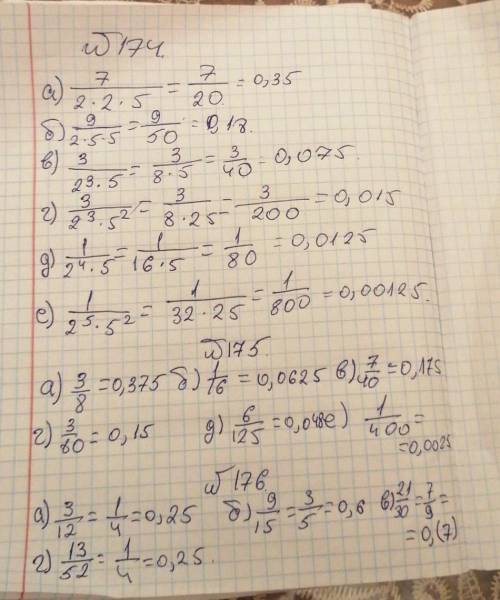 №174.
а) 7/(2·2·5) = 7/20 = 0,35
б) 9/(2·5·5) = 9/50 = 0,18.
в) 3/(2³·5) = 3/(8·5) = 3/40 = 0,075.
г) 3/(2³·5²) = 3/(8·25) = 3/200 = 0,015
д) 1/(2⁴·5) = 1/(16·5) = 1/80 = 0,0125
е) 1/(2⁵·5²) = 1/(32·25) = 1/800 = 0,00125.
№175.
а) 3/8 = 0,375 б) 1/16 = 0,0625 в) 7/40 = 0,175
г) 3/60 = 0,15 д) 6/125 = 0,048 е) 1/400 =
= 0,0025
№176.
а) 3/12 = 1/4 = 0,25 б) 9/15 = 3/5 = 0,6 в) 21/30 = 7/9 =
= 0,(7)
г) 13/52 = 1/4 = 0,25.